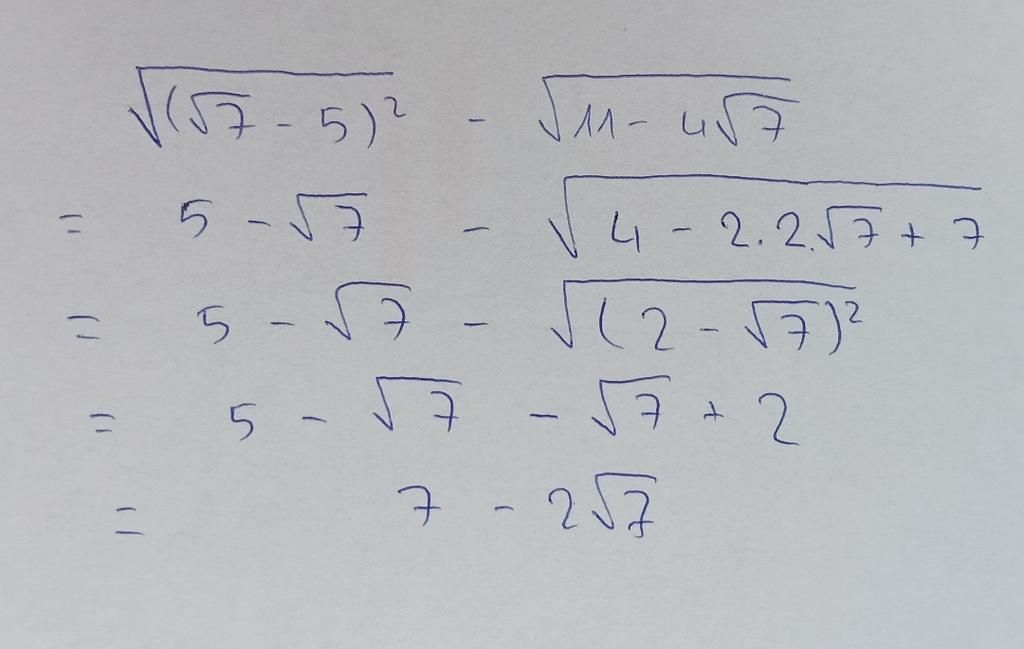 √((√7 - 5)²) - √(11 - 4√7)
= 5 - √7 - √(4 - 2.2.√7 + 7)
= 5 - √7 - √((2 - √7)²)
= 5 - √7 - √7 + 2
= 7 - 2√7